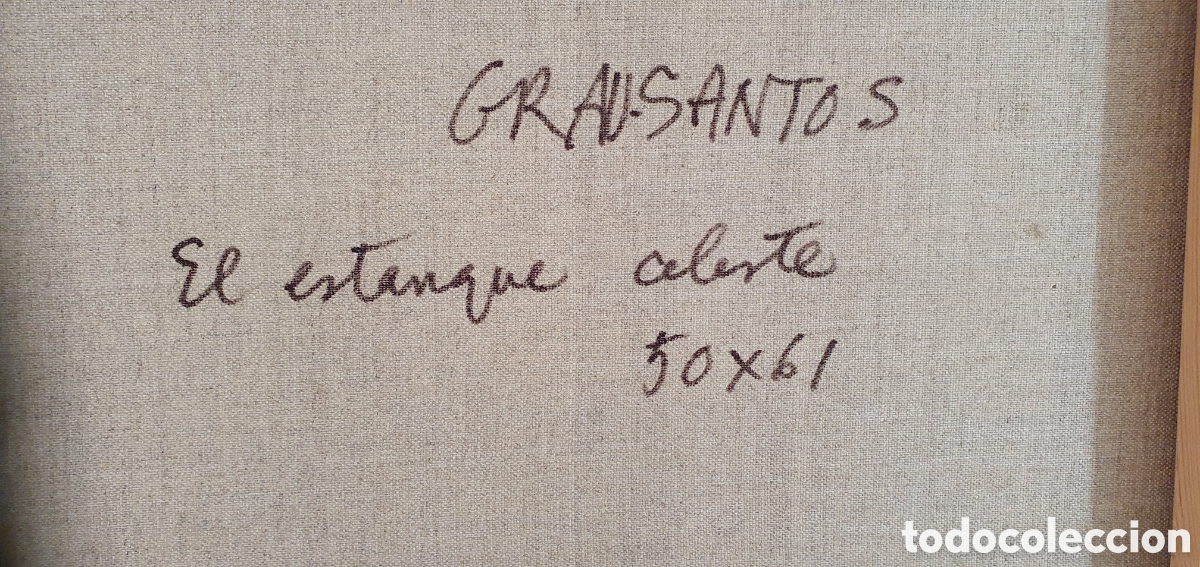 GRAU-SANTOS
El estanque celeste
50x61
todocoleccion